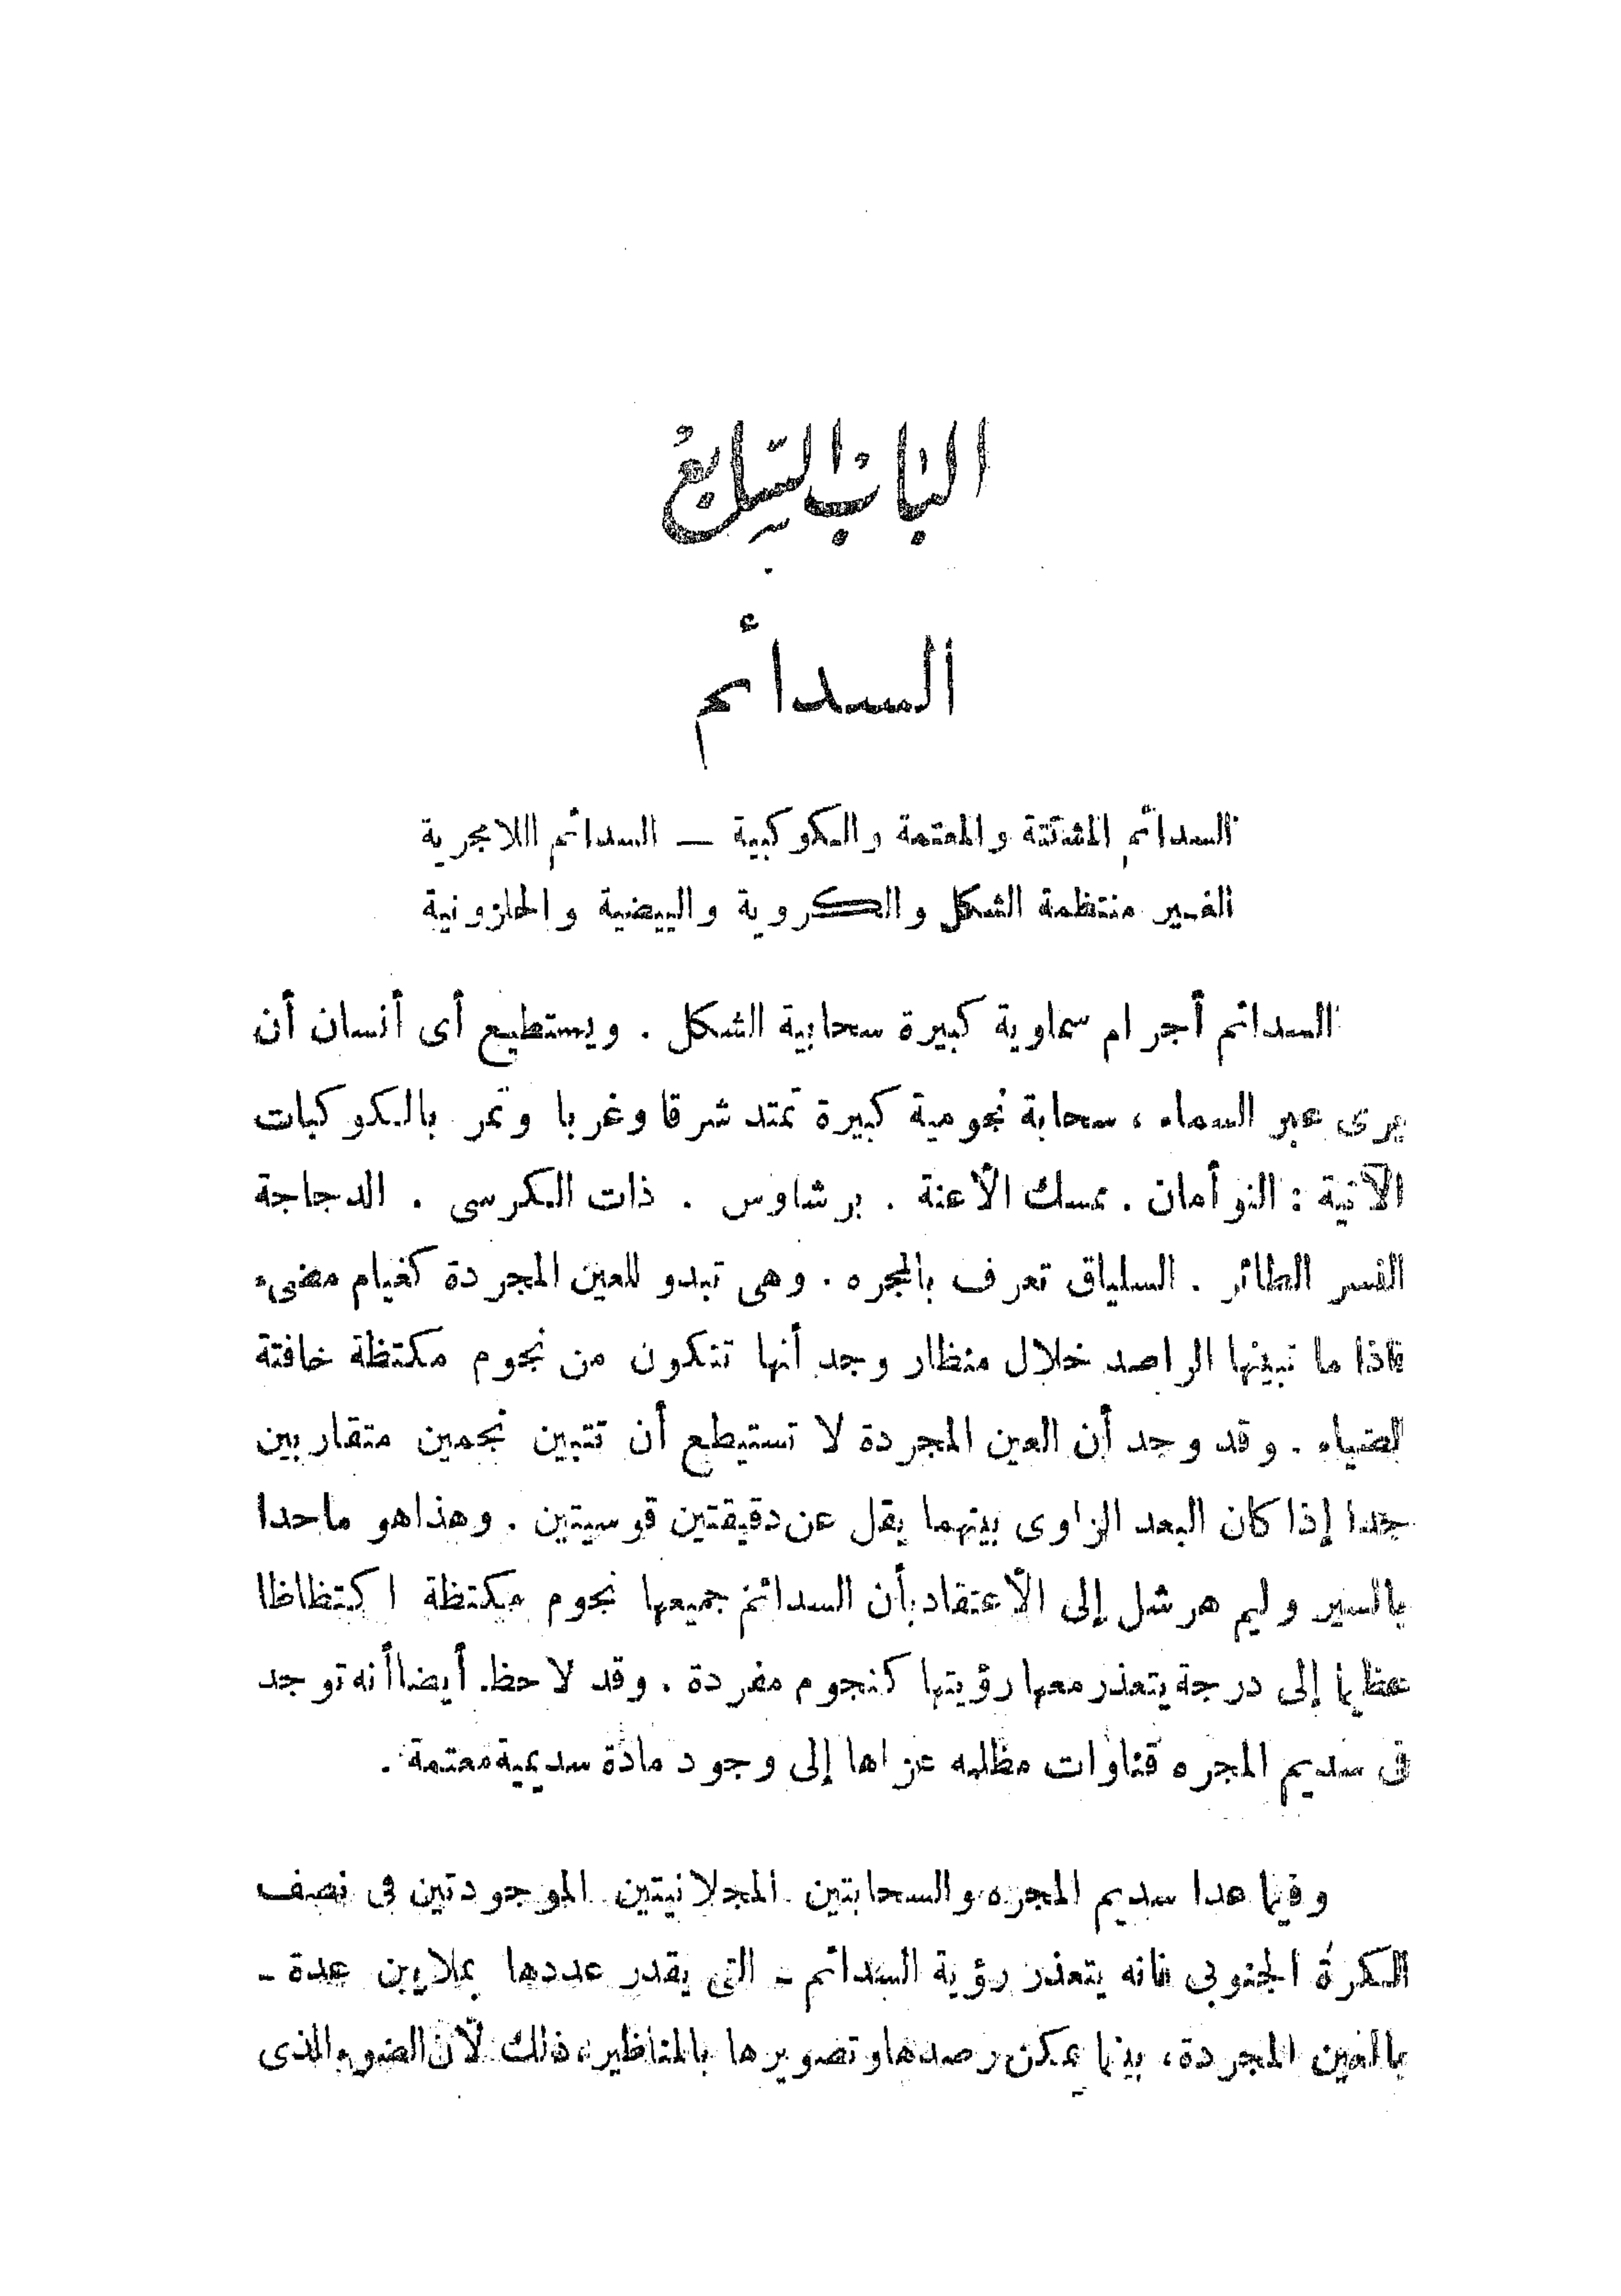 الباب السابع
السدائم
السدائم المشتتة والمعتمة والكوكبية — السدائم اللامجرية
الغير منتظمة الشكل والكروية والبيضية والحلزونية
السدائم أجرام سماوية كبيرة سحابية الشكل . ويستطيع أى أنسان أن
يرى عبر السماء ، سحابة نجومية كبيرة تمتد شرقا وغربا وتمر بالكوكبات
الآتية : التوأمان . ممسك الأعنة . برشاوس . ذات الكرسى . الدجاجة
النسر الطائر . السلياق تعرف بالمجره . وهى تبدو للعين المجردة كغيام مضىء
فاذا ما تبينها الراصد خلال منظار وجد أنها تتكون من نجوم مكتظة خافتة
الضياء . وقد وجد أن العين المجردة لا تستيطع أن تتبين نجمين متقاربين
جدا إذا كان البعد الزاوى بينهما يقل عن دقيقتين قوسيتين . وهذا هو ماحدا
بالسير وليم هرشل إلى الأعتقاد بأن السدائم جميعها نجوم مكتظة اكتظاظا
عظيما إلى درجة يتعذر معها رؤيتها كنجوم مفردة . وقد لاحظ أيضا أنه توجد
فى سديم المجره قناوات مظلمه عزاها إلى وجود مادة سديمية معتمة .
وفيما عدا سديم المجره والسحابتين المجلانيتين الموجودتين فى نصف
الكرة الجنوبى فانه يتعذر رؤية السدائم - التى يقدر عددها بملايين عدة -
بالعين المجردة ، بينما يمكن رصدها وتصويرها بالمناظير ، ذلك لأن الضوء الذى